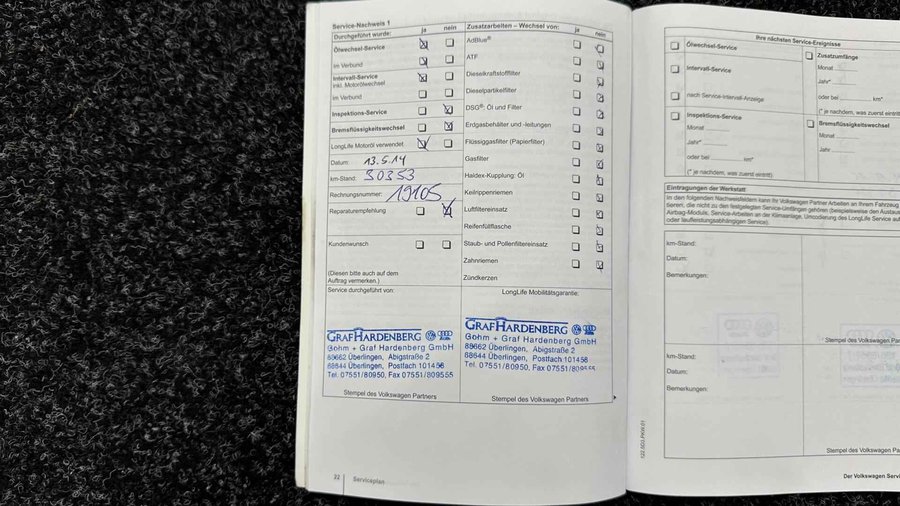 Service-Nachweis 1
Durchgeführt wurde: ja nein
Ölwechsel-Service
im Verbund
Intervall-Service
inkl. Motorölwechsel
im Verbund
Inspektions-Service
Bremsflüssigkeitswechsel
LongLife Motoröl verwendet
Datum: 13.5.14
km-Stand: 30353
Rechnungsnummer: 19105
Reparaturempfehlung
Kundenwunsch
(Diesen bitte auch auf dem
Auftrag vermerken.)
Service durchgeführt von:
GRAF HARDENBERG
Gohm + Graf Hardenberg GmbH
88662 Überlingen, Abigstraße 2
88644 Überlingen, Postfach 101456
Tel. 07551/80950, Fax 07551/809555
Stempel des Volkswagen Partners
Zusatzarbeiten – Wechsel von: ja nein
AdBlue®
ATF
Dieselkraftstofffilter
Dieselpartikelfilter
DSG®: Öl und Filter
Erdgasbehälter und -leitungen
Flüssiggasfilter (Papierfilter)
Gasfilter
Haldex-Kupplung: Öl
Keilrippenriemen
Luftfiltereinsatz
Reifenfüllflasche
Staub- und Pollenfiltereinsatz
Zahnriemen
Zündkerzen
LongLife Mobilitätsgarantie:
GRAF HARDENBERG
Gohm + Graf Hardenberg GmbH
88662 Überlingen, Abigstraße 2
88644 Überlingen, Postfach 101456
Tel. 07551/80950, Fax 07551/809555
Stempel des Volkswagen Partners
22 Serviceplan
Ihre nächsten Service-Ereignisse
Ölwechsel-Service
Intervall-Service
nach Service-Intervall-Anzeige
Inspektions-Service
Monat
Jahr*
oder bei km*
(* je nachdem, was zuerst eintritt)
Zusatzumfänge
Monat
Jahr*
oder bei km*
(* je nachdem, was zuerst eintritt)
Bremsflüssigkeitswechsel
Monat
Jahr
Eintragungen der Werkstatt
In den folgenden Nachweisfeldern kann Ihr Volkswagen Partner Arbeiten an Ihrem Fahrzeug
tieren, die nicht zu den festgelegten Service-Umfängen gehören (beispielsweise den Austaus
Airbag-Moduls, Service-Arbeiten an der Klimaanlage, Umcodierung des LongLife Service auf
oder laufleistungsabhängigen Service).
km-Stand:
Datum:
Bemerkungen:
Stempel des Volkswagen Partners
km-Stand:
Datum:
Bemerkungen:
Stempel des Volkswagen Partners
Der Volkswagen Servi